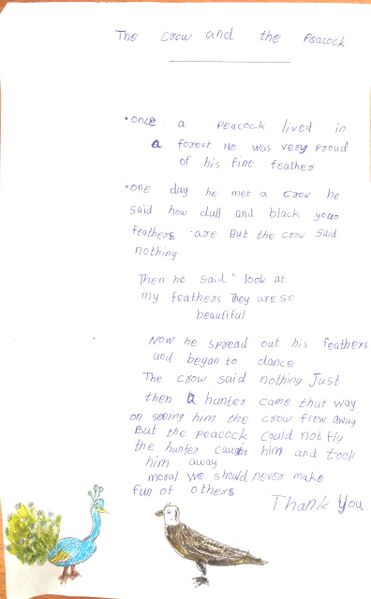 The crow and the Peacock
• once a peacock lived in
a forest He was very proud
of his fine feather
• one day he met a crow he
said how dull and black year
feathers are But the crow said
nothing
Then he said " look at
my feathers They are so
beautiful
Now he spread out his feathers
and began to dance
The crow said nothing Just
then a hunter came that way
on seeing him the crow flew away
But the peacock could not fly
the hunter caught him and took
him away
moral we should never make
fun of others
Thank You